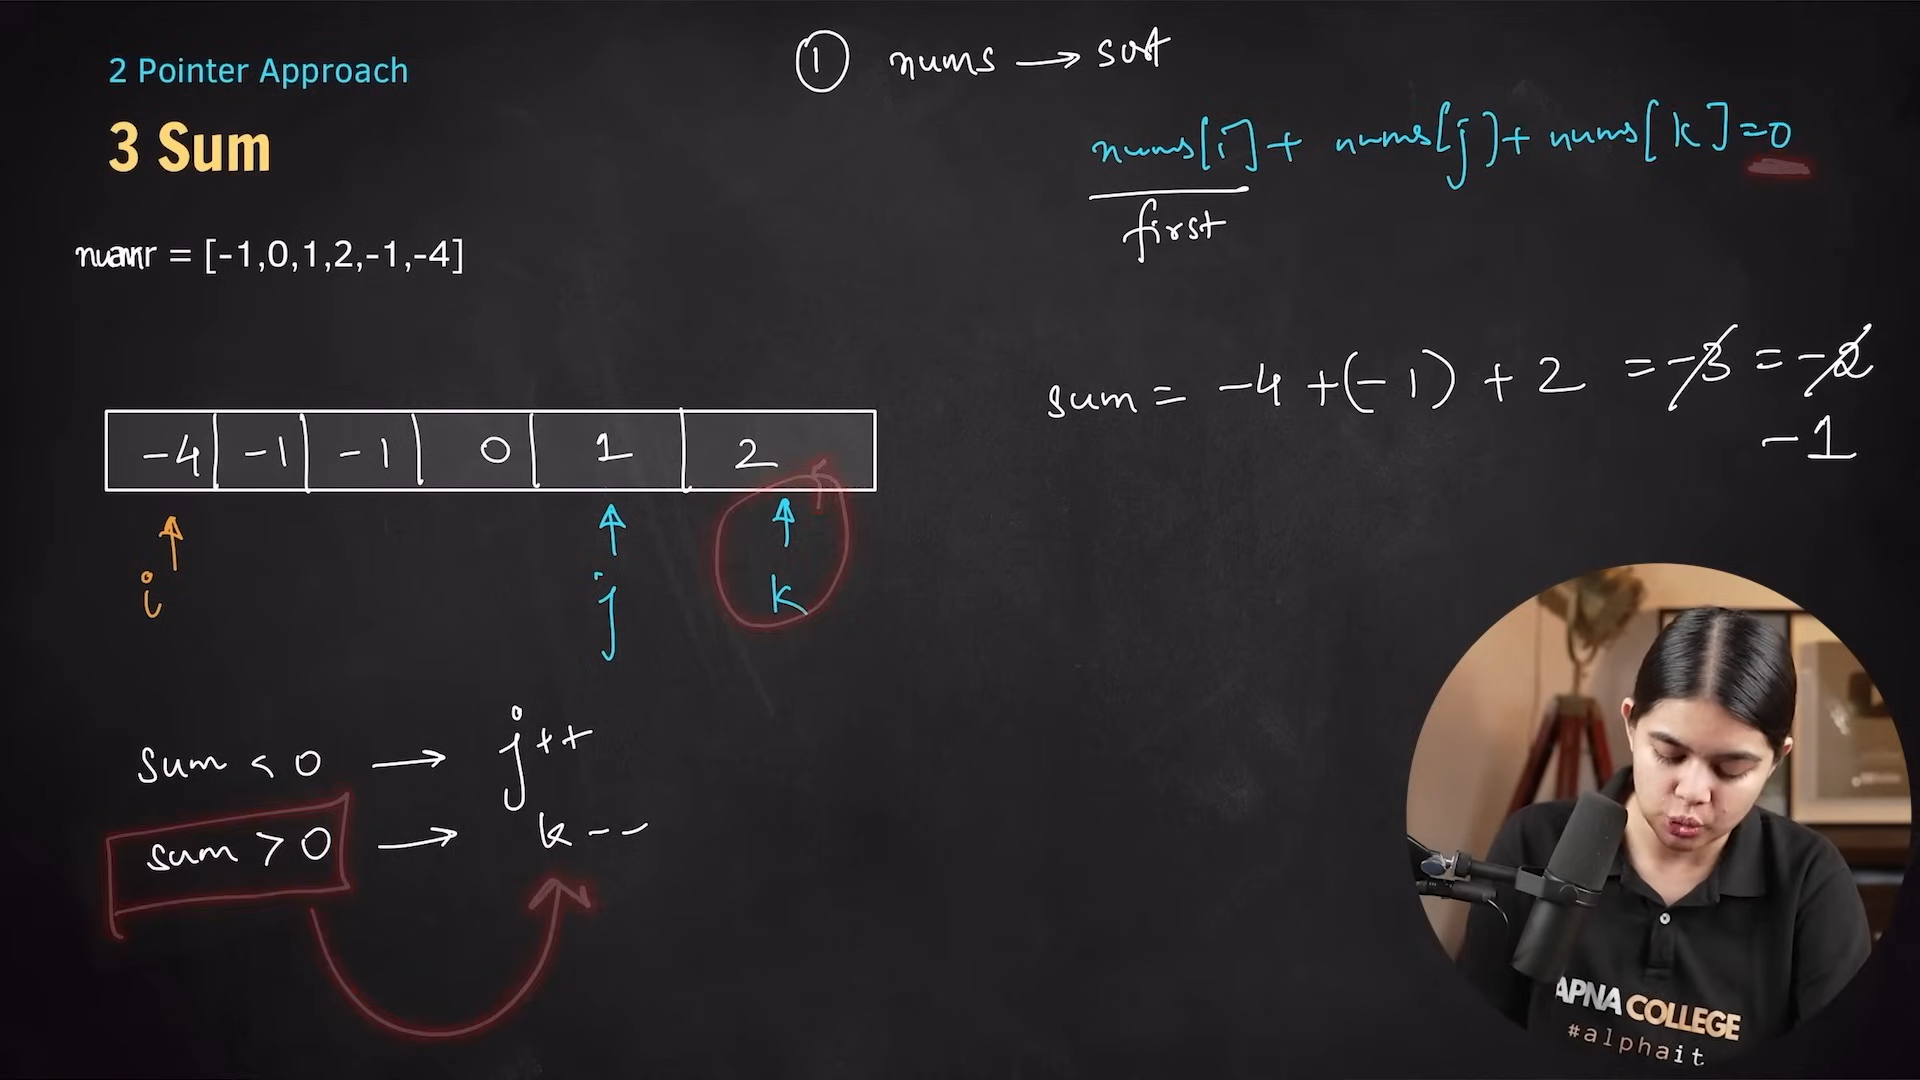 2 Pointer Approach
3 Sum
① nums → sort
nums[i] + nums[j] + nums[k] = 0
first
= [-1,0,1,2,-1,-4]
sum = -4 + (-1) + 2 = -3 = -2
-1
-4 -1 -1 0 1 2
i j k
sum < 0 → j++
sum > 0 → k--
APNA COLLEGE
#alphait